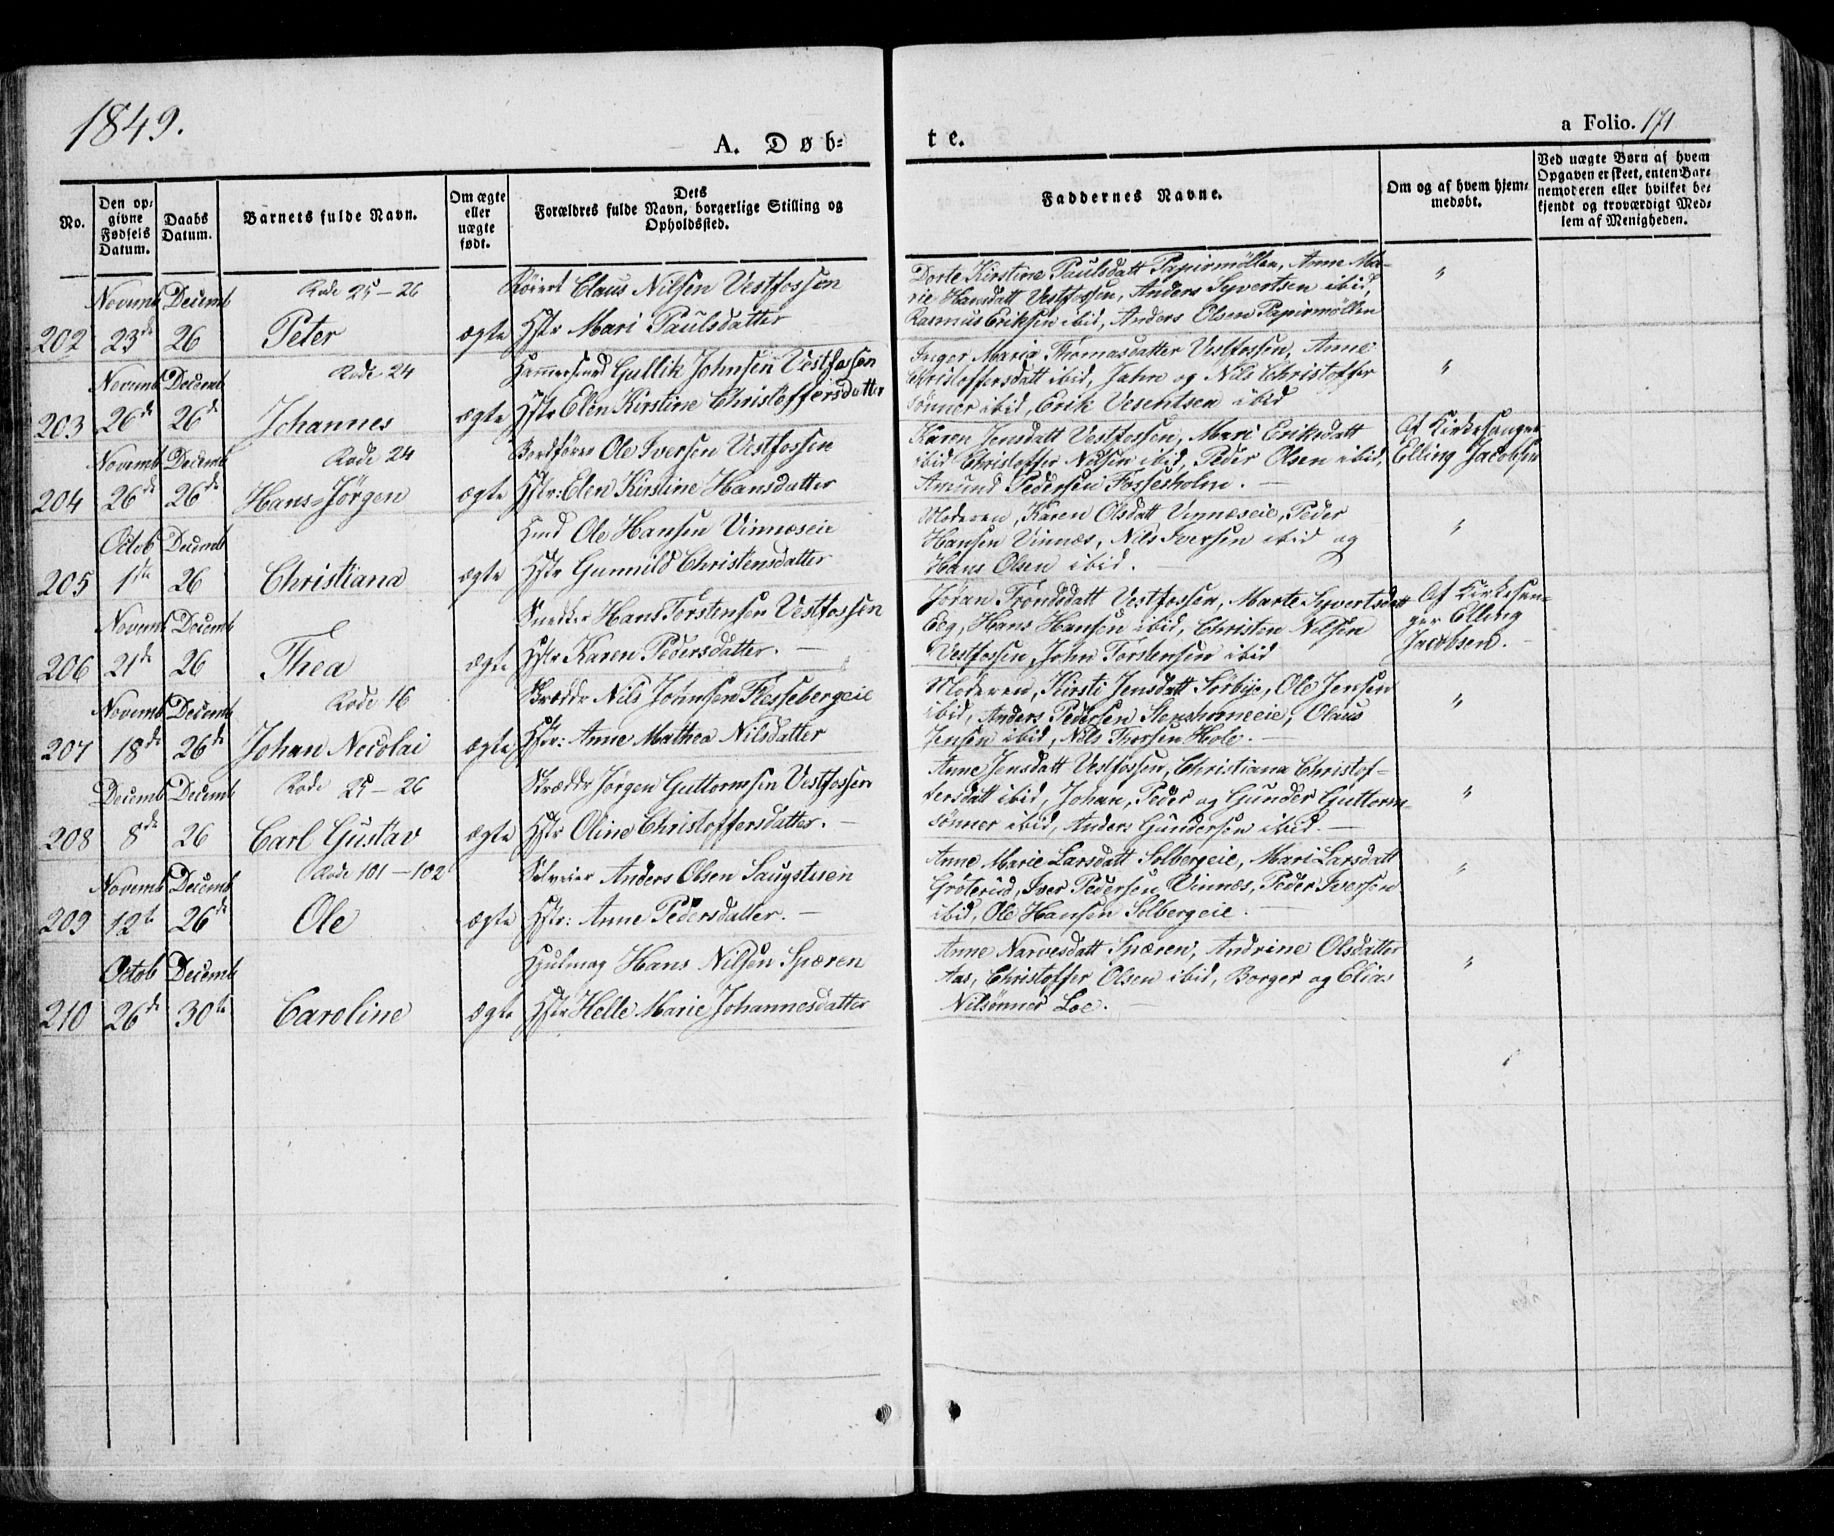 1849.
A. Døb-
te.
a Folio. 171
No.
Den op-
givne
Fødsels
Datum.
Daabs
Datum.
Barnets fulde Navn.
Om ægte
eller
uægte
født.
Dets
Forældres fulde Navn, borgerlige Stilling og
Opholdssted.
Faddernes Navne.
Om og af hvem hjem-
medøbt.
Ved uægte Børn af hvem
Opgaven er skeet, enten Bar-
nemoderen eller hvilket be-
kjendt og troværdigt Med-
lem af Menigheden.
Novemb Decemb Rode 25-26 Claus Nilsen Vestfossen
202 23de 26 Peter ægte Hstr Mari Paulsdatter
Dorte Kirstine Paulsdatt Papirmøllen, Anne Ma- "
rie Hansdatt Vestfossen, Anders Syvertsen ibid,
Rasmus Eriksen ibid, Anders Olsen Papirmøllen
Novemb Decemb Rode 24 Gullik Johnsen Vestfossen
203 26de 26de Johannes ægte Hstr Elen Kirstine Christoffersdatter
Inger Maria Thomasdatter Vestfossen, Anne
Christoffersdatt ibid, Jahn og Nils Christoffer "
sønner ibid, Erik ibid
Novemb Decemb Rode 24 Bordfører Ole Iversen Vestfossen
204 26de 26de Hans-Jørgen ægte Hstr: Elen Kirstine Hansdatter
Karen Jensdatt Vestfossen, Mari Eriksdatt Af Kirkesanger
ibid Christoffer Nilsen ibid, Peder Olsen ibid, Elling Jacobsen
Amund Pedersen Fossesholm. —
Octob Decemb Hmd Ole Hansen Vinnæseie
205 1ste 26 Christiana ægte Hstr Gunnild Christensdatter
Moderen, Karen Olsdatt Vinnæseie, Peder
Hansen Vinnæs, Nils Iversen ibid og "
Hans Olsen ibid. —
Novemb Decemb Snedker Hans Torstensen Vestfossen
206 21de 26 Thea ægte Hstr Karen Pedersdatter. —
Jøran Trondsdatt Vestfossen, Marte Syvertsdatt Af Kirkesan-
Eeg, Hans Hansen ibid, Christen Nilsen ger Elling
Vestfossen, John Torstensen ibid Jacobsen.
Novemb Decemb Rode 16 Skrædder Nils Johnsen Flessebergeie
207 18de 26de Johan Nicolai ægte Hstr: Anne Mathea Nilsdatter
Moderen, Kirsti Jensdatt Sørbye, Ole Jensen
ibid, Anders Pedersen Stenshorneeie, Olaus "
Jensen ibid, Nils Thorsen Hole. —
Decemb Decemb Rode 25-26 Skrædder Jørgen Guttormsen Vestfossen
208 8de 26 Carl Gustav ægte Hstr Oline Christoffersdatter. —
Anne Jensdatt Vestfossen, Christiana Christof-
fersdatt ibid, Johan, Peder og Gunder Guttorm- "
sønner ibid, Anders Gundersen ibid. —
Novemb Decemb Rode 101-102 Selveier Anders Olsen Saugstuen
209 12te 26de Ole ægte Hstr: Anne Pedersdatter. —
Anne Marie Larsdatt Solbergeie, Mari Larsdatt "
Grøterud, Iver Pedersen Vinnæs, Peder Iversen
ibid, Ole Hansen Solbergeie.
Octob Decemb Hjulmag Hans Nilsen Spæren
210 26de 30te Caroline ægte Hstr Helle Marie Johannesdatter
Anne Narvesdatt Spæren, Andrine Olsdatter
Aas, Christoffer Olsen ibid, Borger og Elias "
Nilsønner Loe. —